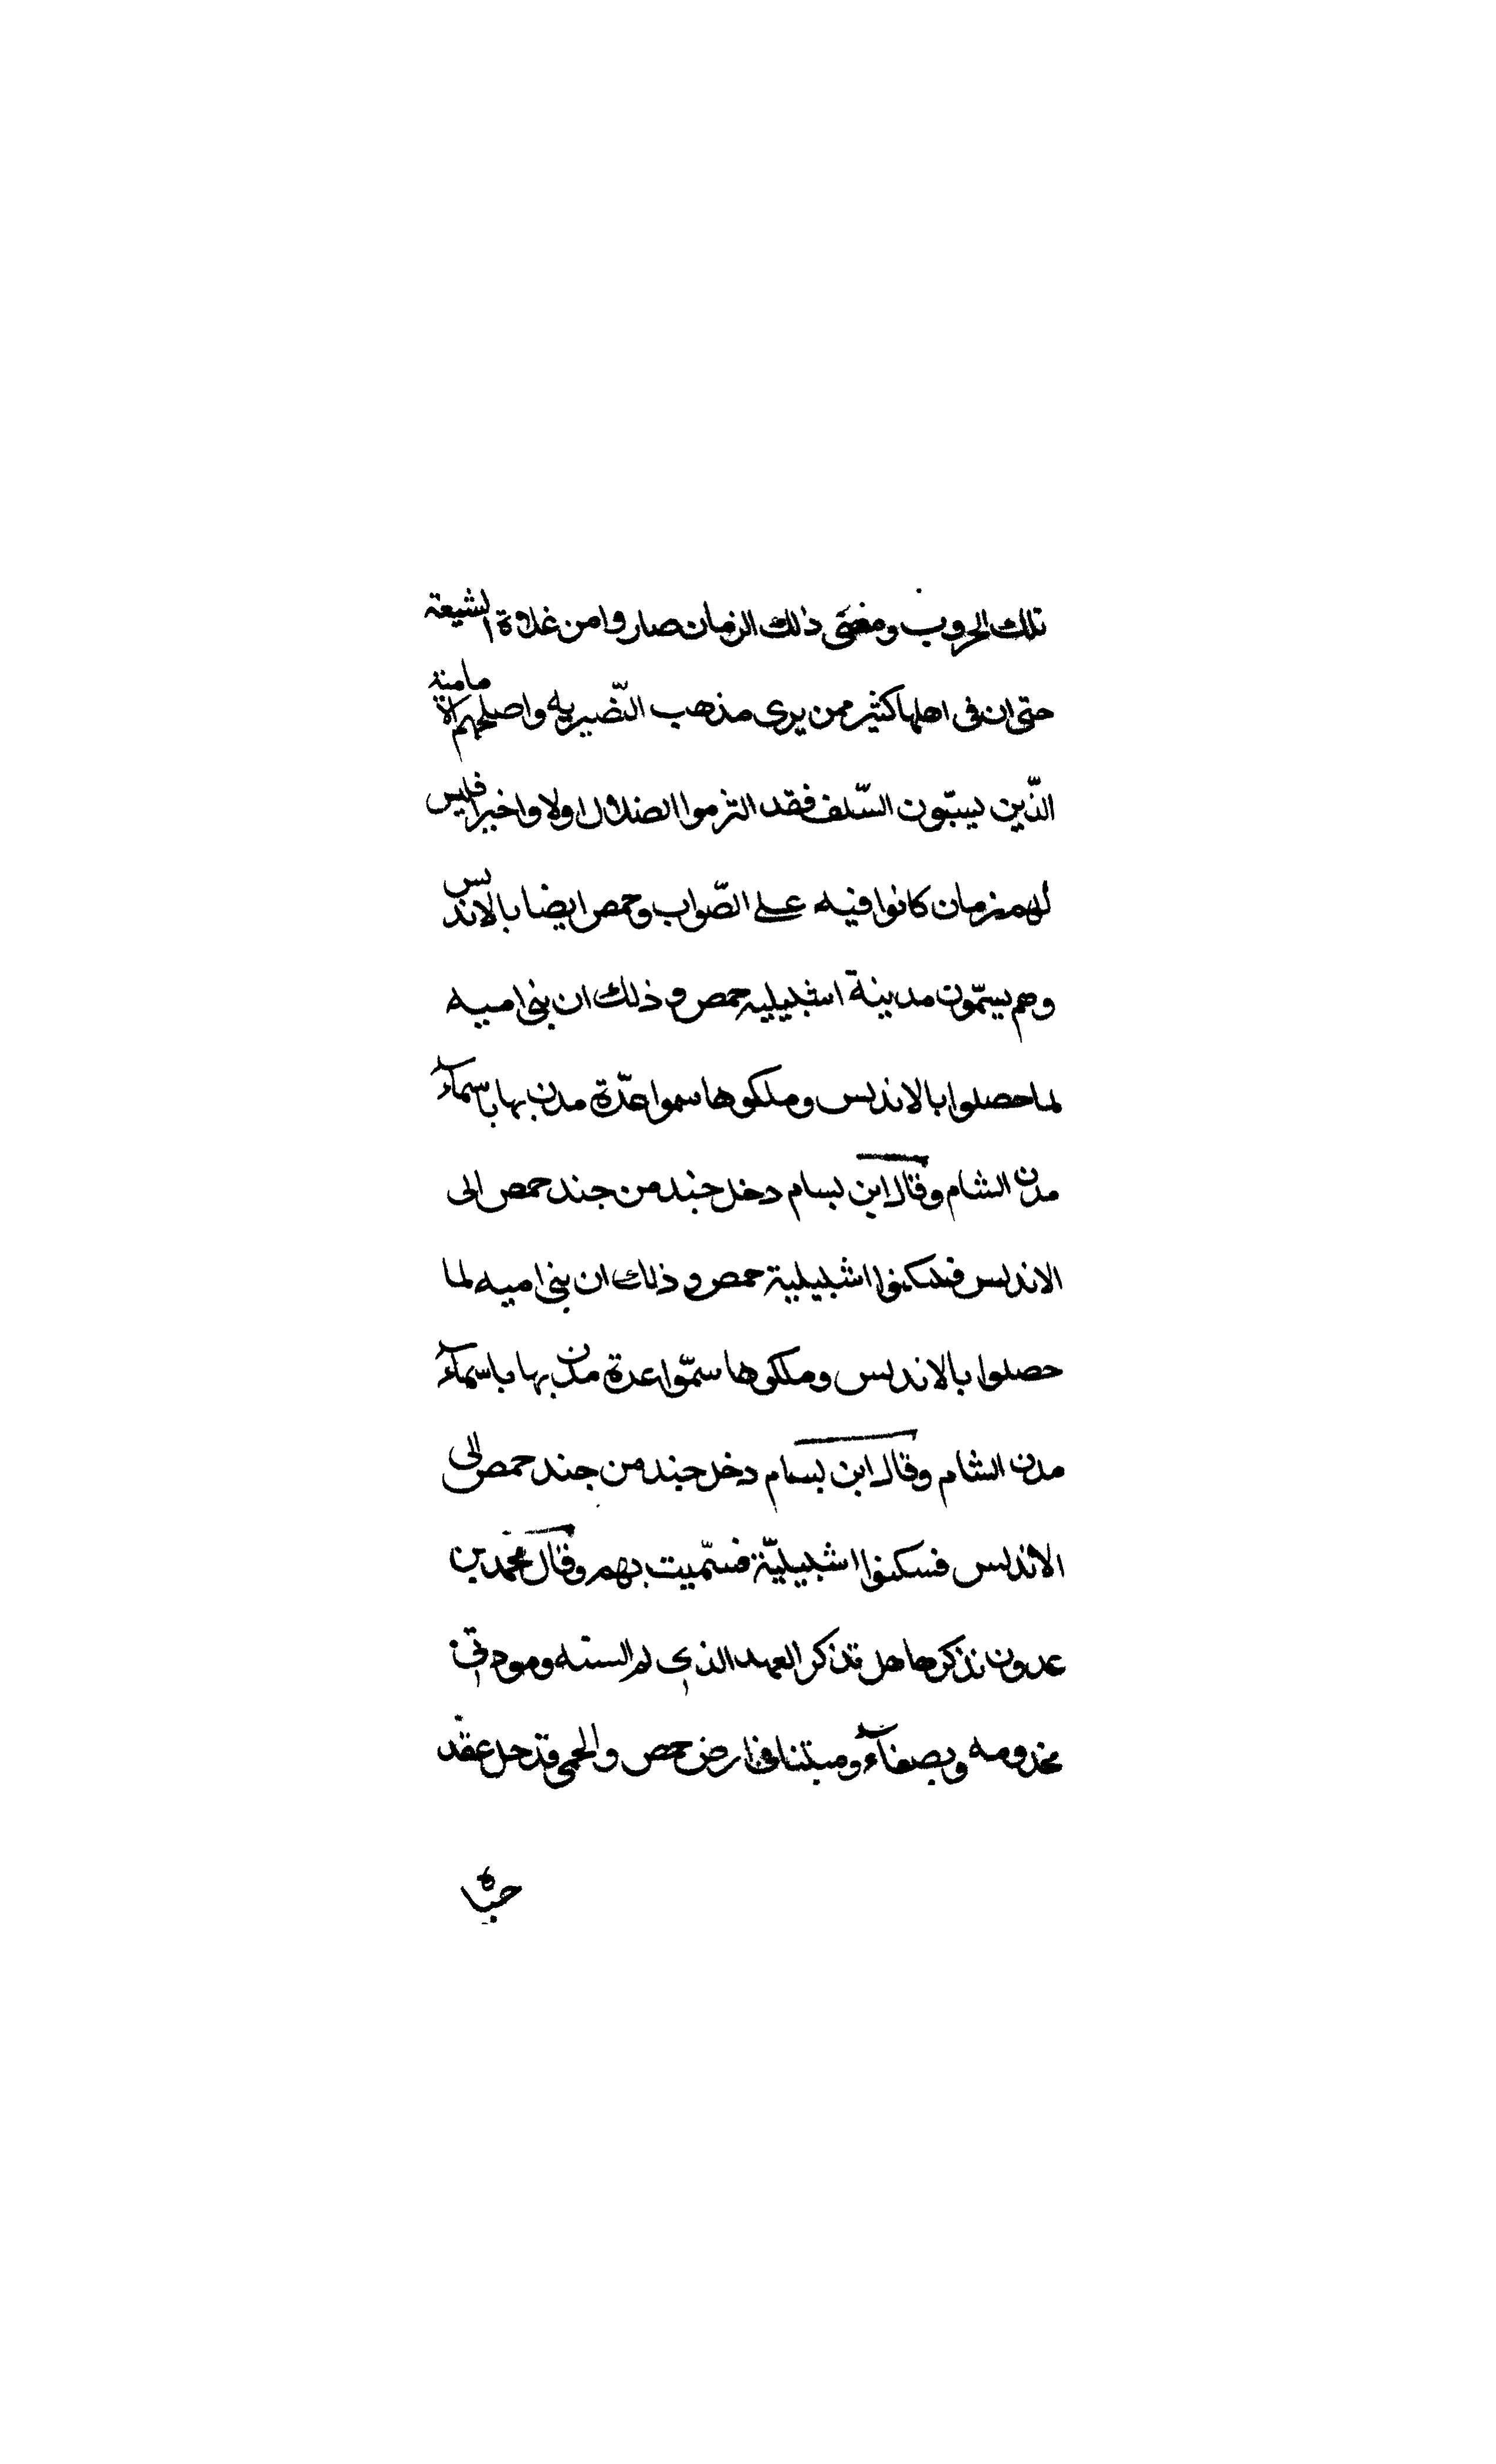 تلك الحروب ومضى ذلك الزمان صاروا من غلاة الشيعة
حتى ان فى اهلها كثير ممن يرى مذهب النّضيريه واصلهم الامامية
الذّين يسبّون السّلف فقد التزموا الضلال اولا واخيرا فليس
لهم زمان كانوا فيه على الصّواب وحمص ايضا بالاندلس
وهم يسمّون مدينة اشبيليه حمص وذلك ان بنى اميه
لما حصلوا بالاندلس وملكوها سموا عدّة مدن بها باسمآء
مدن الشام وقال ابن بسام دخل جند من جند حمص الى
الاندلس فسكنوا اشبيلية حمص وذلك ان بنى اميه لما
حصلوا بالاندلس وملكوها سمّوا عدة مدن بها باسمآء
مدن الشام وقال ابن بسام دخل جند من جند حمص الى
الاندلس فسكنوا اشبيليّة فسمّيت بهم وقال محمد بن
عدون نذكرها هل تذكر العهد الذى لم السنه ومودتى
مخدومه وبصفآء ومبتنا فى ارض حمص والحمى قد حل عقد
حباه